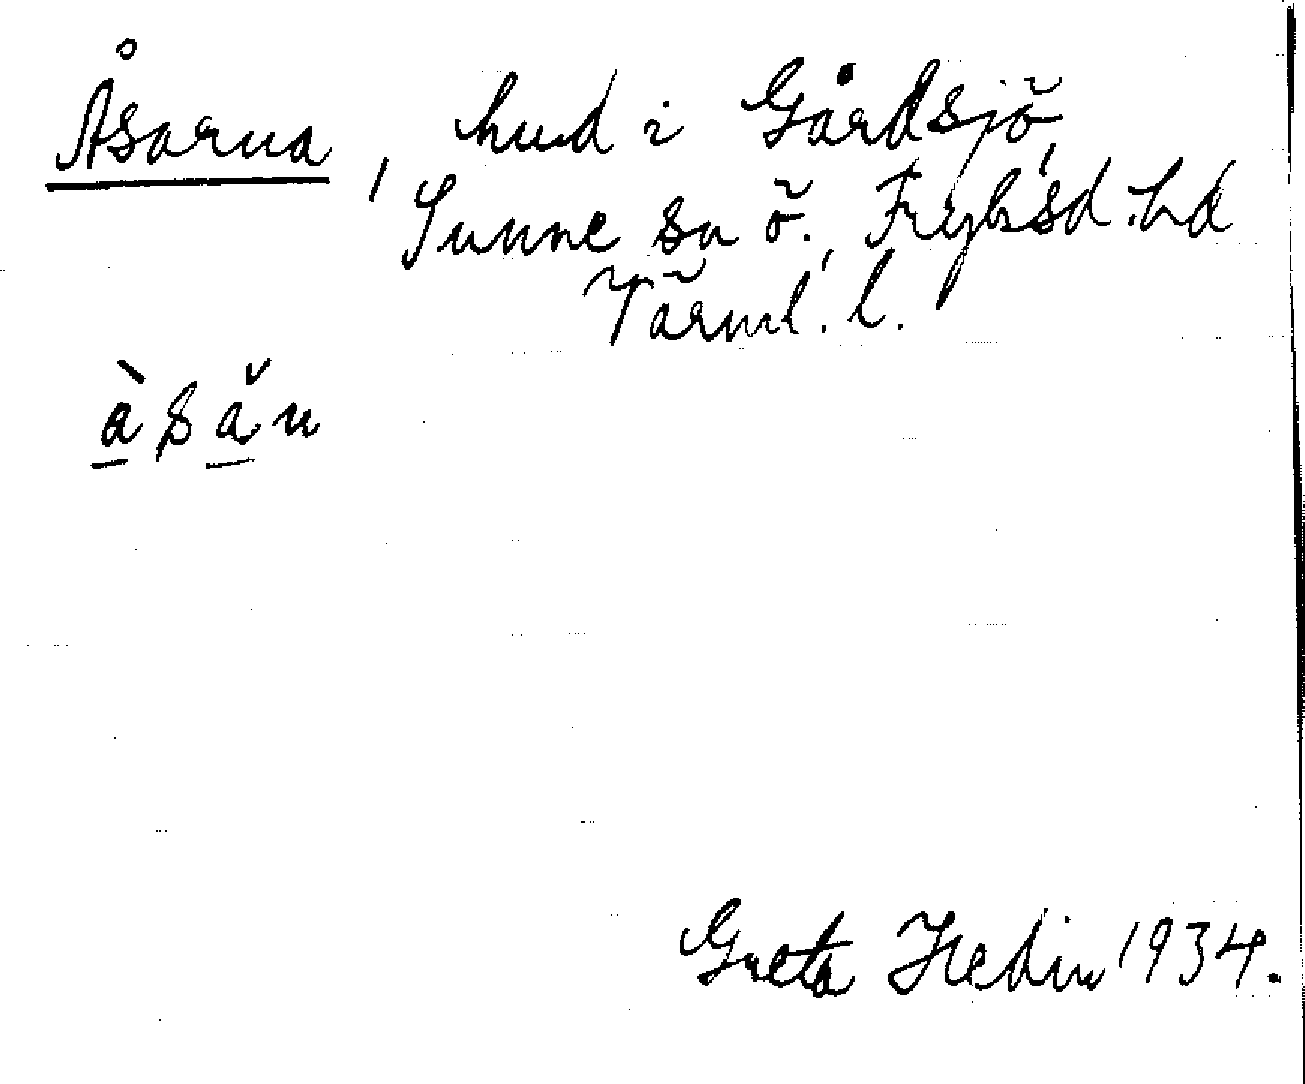 Åsarna, hmd i Gårdsjö,
Sunne sn ö. Fryksd. hd
Värml. l.
à̠ s ǎ̠ n
Greta Hedin 1934.